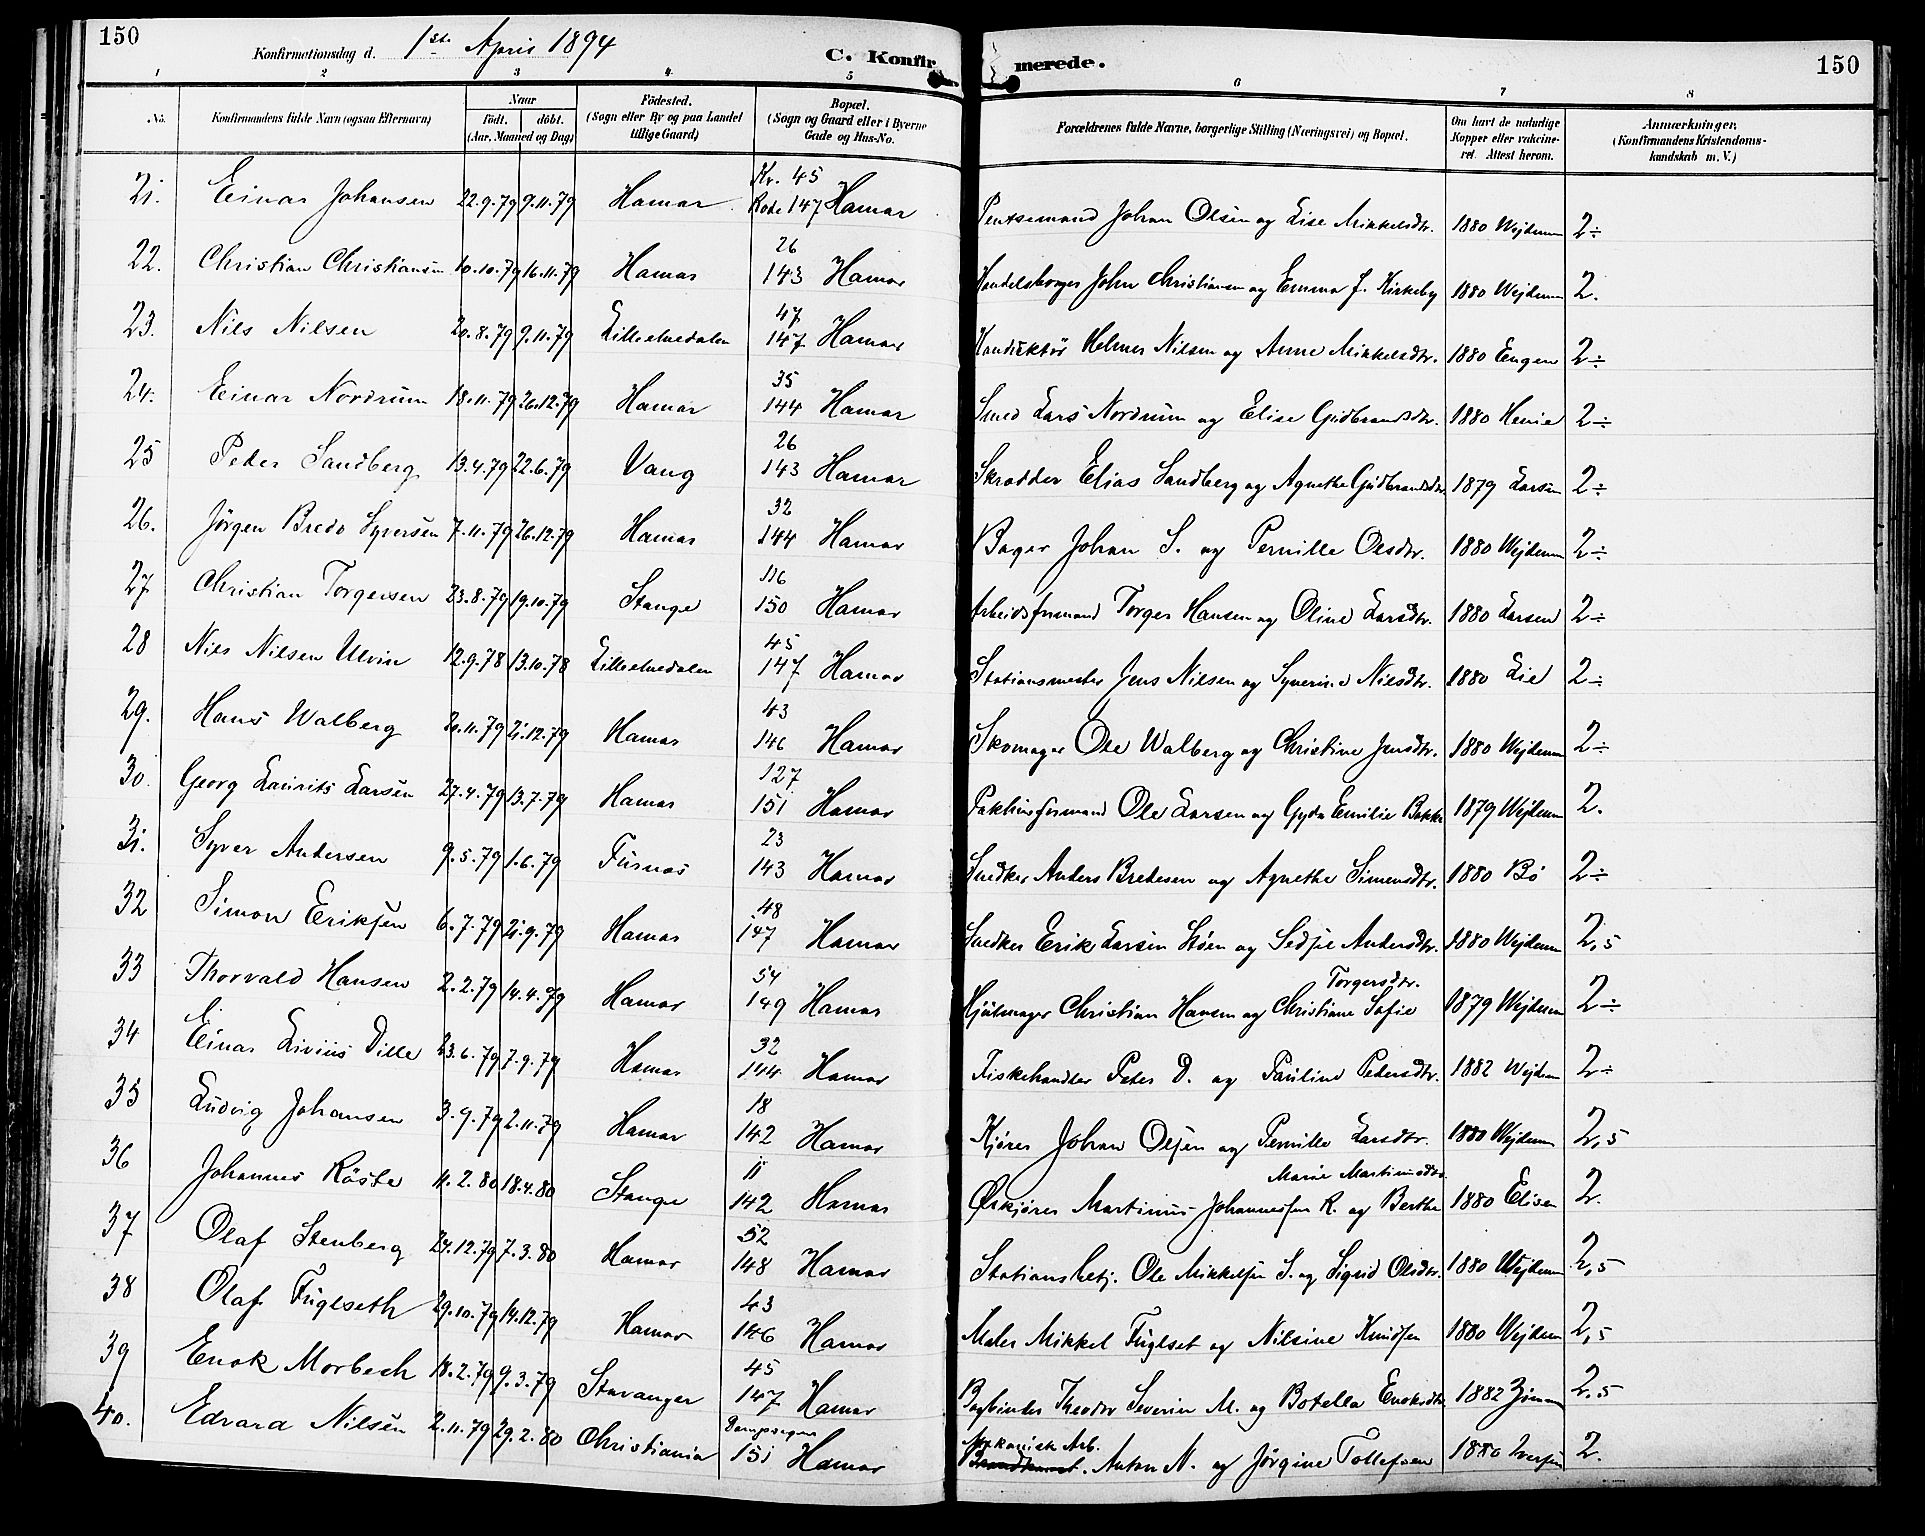 150
Konfirmationsdag d. 1ste April 1894
C. Konfir
merede.
150
1 2 3 4 5 6 7 8
No.
Konfirmandens fulde Navn (ogsaa Efternavn)
Naar
födt. döbt.
(Aar, Maaned og Dag)
Födested.
(Sogn eller By og paa Landet
tillige Gaard)
Bopæl.
(Sogn og Gaard eller i Byerne
Gade og Hus-No.
Forældrenes fulde Navne, borgerlige Stilling (Næringsvei) og Bopæl.
Om havt de naturlige
Kopper eller vakcine-
ret. Attest herom.
Anmærkninger.
(Konfirmandens Kristendoms-
kundskab m. V.)
21. Einar Johansen 22.9.79 9.11.79 Hamar Kv. 45 Rode 147 Hamar Johan Olsen og Lise Mikkelsdtr. 1880 Wejdemm 2÷
22. Christian Christiansen 10.10.79 16.11.79 Hamar 26 143 Hamar Handelsborger John Christiansen og Emma f. Kirkeby 1880 Wejdemm 2.
23. Nils Nilsen 20.8.79 9.11.79 Lilleelvedalen 47 147 Hamar Konduktör Helmer Nilsen og Anne Mikkelsdtr. 1880 Engen 2÷
24. Einar Nordrum 18.11.79 26.12.79 Hamar 35 144 Hamar Smed Lars Nordrum og Elise Gudbrandsdtr. 1880 Henie 2÷
25 Peder Sandberg 13.4.79 22.6.79 Vang 26 143 Hamar Skrædder Elias Sandberg og Agnethe Gudbrandsdtr. 1879 Larsen 2÷
26. Jørgen Bredo Syversen 7.11.79 26.12.79 Hamar 32 144 Hamar Bager Johan S. og Pernille Olsdtr. 1880 Wejdemm 2÷
27 Christian Torgersen 23.8.79 19.10.79 Stange 116 150 Hamar Arbeidsformand Torger Hansen og Oline Larsdtr. 1880 Larsen 2÷
28 Nils Nilsen Ulvin 12.9.78 13.10.78 Lilleelvedalen 45 147 Hamar Stationsmester Jens Nilsen og Syverine Nilsdtr. 1880 Lie 2÷
29. Hans Walberg 20.11.79 21.12.79 Hamar 43 146 Hamar Skomager Ole Walberg og Christine Jensdtr. 1880 Wejdemm 2÷
30. Georg Laurits Larsen 27.4.79 13.7.79 Hamar 127 151 Hamar Pakhusformand Ole Larsen og Gyda Emilie Bakke 1879 Wejdemm 2.
31. Syver Andersen 9.5.79 1.6.79 Furnæs 23 143 Hamar Snedker Anders Bredesen og Agnethe Simensdtr. 1880 Bö 2÷
32 Simon Eriksen 6.7.79 21.9.79 Hamar 48 147 Hamar Snedker Erik Larsen Støen og Sedsel Andersdtr. 1880 Wejdemm 2,5
33 Thorvald Hansen 2.2.79 14.4.79 Hamar 54 149 Hamar Hjulmager Christian Hansen og Christiane Sofie Torgersdtr. 1879 Wejdemm 2÷
34 Einar Livius Dille 23.6.79 7.9.79 Hamar 32 144 Hamar Fiskehandler Peter D. og Pauline Pedersdtr. 1882 Wejdem 2÷
35 Ludvig Johansen 3.9.79 2.11.79 Hamar 18 142 Hamar Kjører Johan Olsen og Pernille Larsdtr. 1880 Wejdemm 2,5
36 Johannes Röste 11.2.80 18.4.80 Stange 11 142 Hamar Ølkjører Martinus Johannessen R. og Berthe Marie Martinusdtr. 1880 Elisen 2.
37 Olaf Stenberg 24.12.79 7.3.80 Hamar 52 148 Hamar Stationsbetj. Ole Mikkelsen S. og Sigrid Olsdtr. 1880 Wejdemm 2,5
38 Olaf Fuglseth 29.10.79 14.12.79 Hamar 43 146 Hamar Maler Mikkel Fuglset og Nilsine Knudsen 1880 Wejdem 2,5
39 Enok Morbech 18.2.79 9.3.79 Stavanger 45 147 Hamar Bogbinder Theodor Severin M. og Botella Enoksdtr. 1882 2,5
40. Edvard Nilsen 2.11.79 29.2.80 Christiania 151 Hamar Mekanisk Arb. Anton N. og Jørgine Tollefsen 1880 Iversen 2.